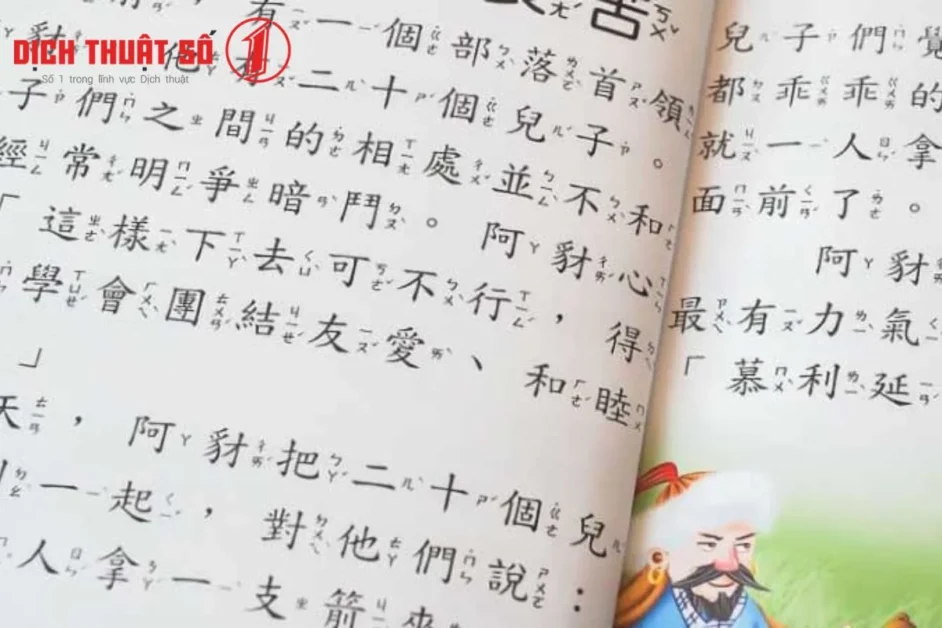 DỊCH THUẬT SỐ 1
Số 1 trong lĩnh vực Dịch thuật
苦
有一個部落首領
他有二十個兒子。
子們之間的相處並不和
經常明爭暗鬥。阿豺心
「這樣下去可不行，得
學會團結友愛、和睦
」
天，阿豺把二十個兒
一起，對他們說：
人拿一支箭來
兒子們覺
都乖乖的
就一人拿
面前了。
阿豺
最有力氣
「慕利延